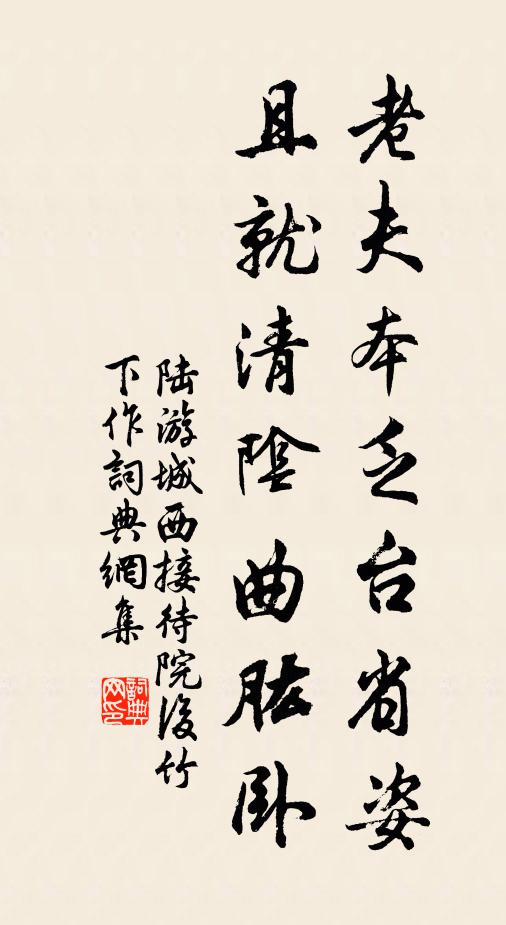 老夫本乏台省姿
且就清陰曲肱卧
陆游城西接待院後竹
下作詞典網集
詞典網印